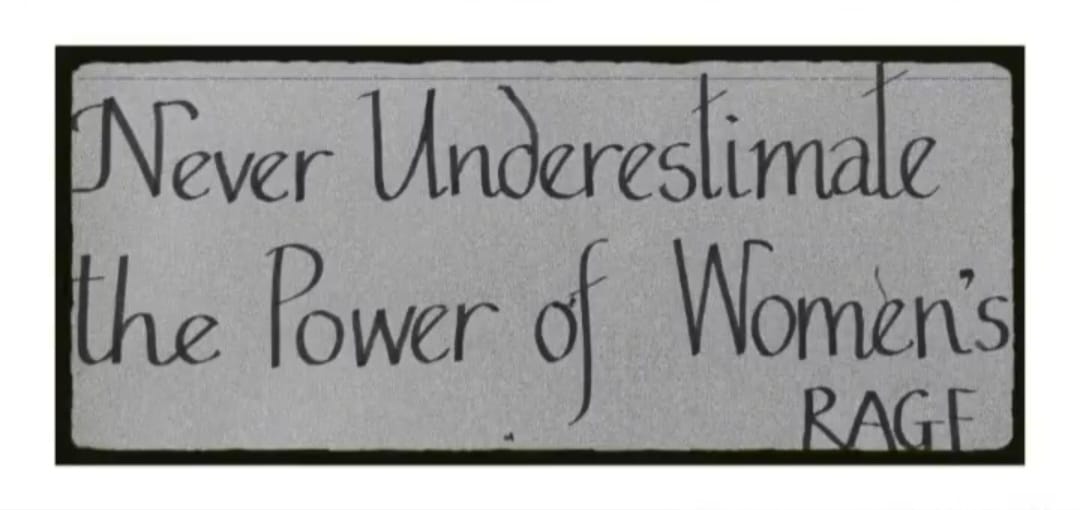 Never Underestimate
the Power of Women's
RAGE